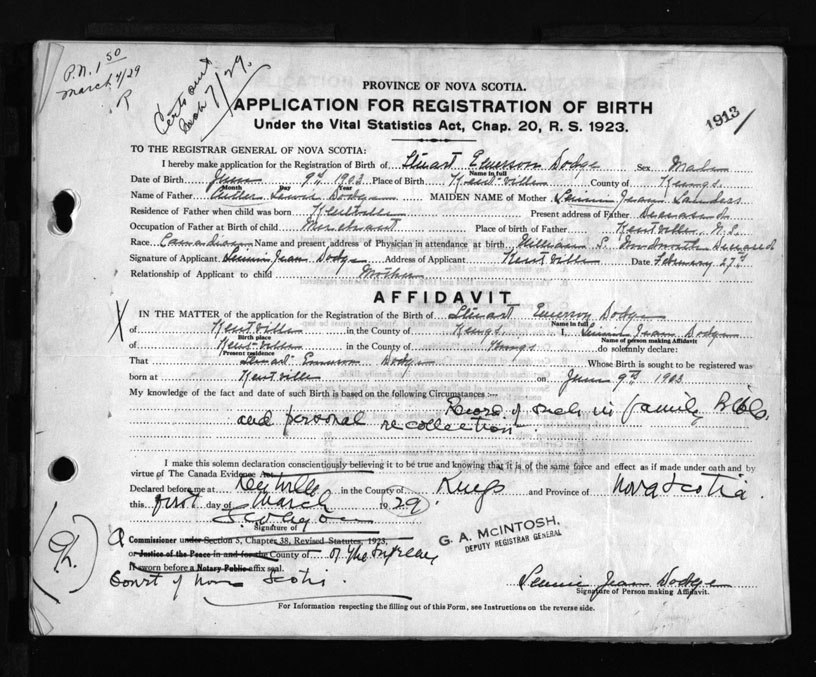 P.N. 1 50
March 4/29
Certs out
Mch 7/29.
PROVINCE OF NOVA SCOTIA.
APPLICATION FOR REGISTRATION OF BIRTH
1913
Under the Vital Statistics Act, Chap. 20, R. S. 1923.
TO THE REGISTRAR GENERAL OF NOVA SCOTIA:
I hereby make application for the Registration of Birth of Stuart Emerson Dodge Sex Male
Name in full
Date of Birth June 9th 1903 Place of Birth Kentville County of Kings
Month Day Year
Name of Father Dodge MAIDEN NAME of Mother Jean Sanders
Residence of Father when child was born Kentville Present address of Father Deceased
Occupation of Father at Birth of Child Merchant Place of birth of Father Kentville, N.S.
Race Canadian Name and present address of Physician in attendance at birth William S. Woodworth Deceased
Signature of Applicant Jean Dodge Address of Applicant Kentville Date February 27th
Relationship of Applicant to child Mother
AFFIDAVIT
IN THE MATTER of the application for the Registration of the Birth of Stuart Emerson Dodge
Name in full
of Kentville in the County of Kings I, Jean Dodge
Birth place Name of person making Affidavit
of Kentville in the County of Kings do solemnly declare:
Present residence
That Stuart Emerson Dodge Whose Birth is sought to be registered was
born at Kentville on June 9th 1903
My knowledge of the fact and date of such Birth is based on the following Circumstances :—
Record of in family Bible.
and personal recollection.
I make this solemn declaration conscientiously believing it to be true and knowing that it is of the same force and effect as if made under oath and by
virtue of The Canada Evidence Act.
Declared before me at Kentville in the County of Kings and Province of Nova Scotia.
this first day of March 29
Signature of
A Commissioner under Section 3, Chapter 38, Revised Statutes, 1923,
or Justice of the Peace in and for the County of of the Supreme
If sworn before a Notary Public affix seal.
Court of Nova Scotia.
G. A. McINTOSH,
DEPUTY REGISTRAR GENERAL
Jean Dodge
Signature of Person making Affidavit.
For Information respecting the filling out of this Form, see Instructions on the reverse side.